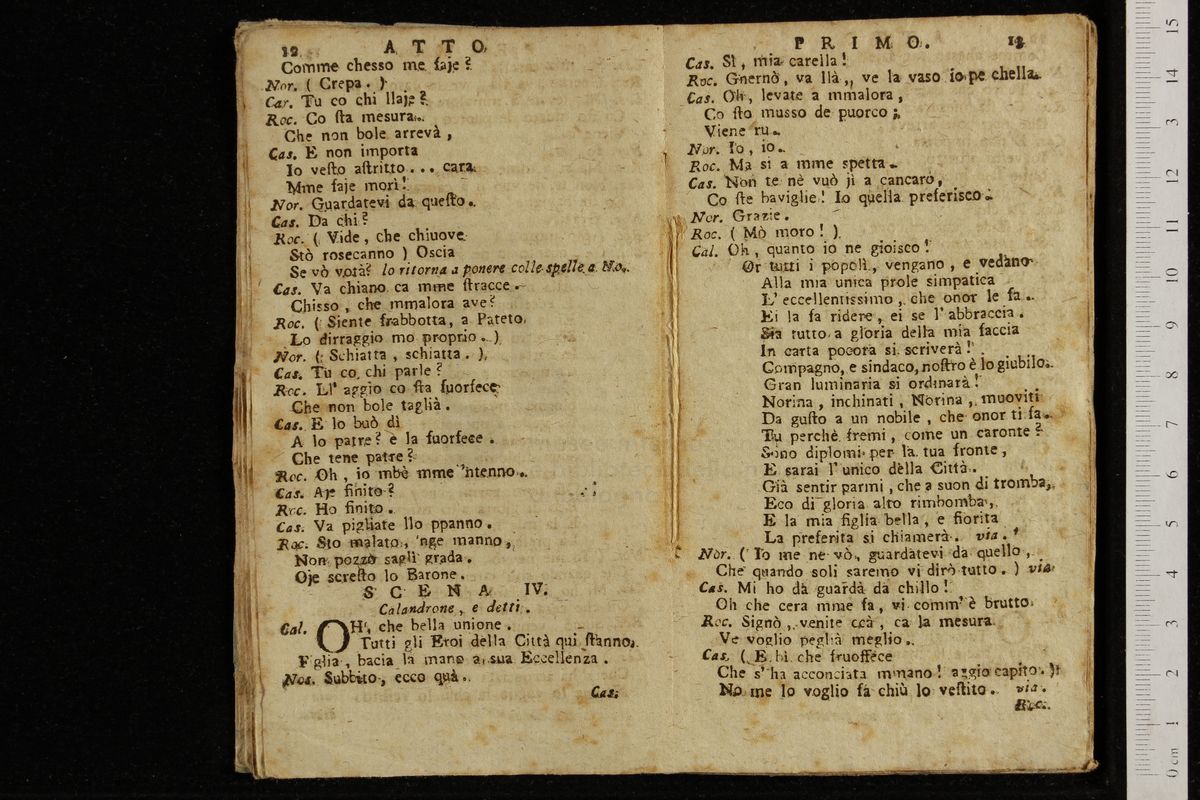 12 ATTO
Comme chesso me faje?
Nor. ( Crepa. )
Car. Tu co chi llaje?
Roc. Co sta mesura..
Che non bole arrevà,
Cas. E non importa
Io vesto astritto... cara
Mme faje morì!
Nor. Guardatevi da questo..
Cas. Da chi?
Roc. ( Vide, che chiuove
Stò rosecanno ) Oscia
Se vò votà? lo ritorna a ponere colle spelle a No..
Cas. Va chiano ca mme stracce.
Chisso, che mmalora ave?
Roc. ( Siente frabbotta, a Pateto
Lo dirraggio mo proprio. )
Nor. ( Schiatta, schiatta. )
Cas. Tu co chi parle?
Roc. Ll' aggio co sta fuorfece
Che non bole taglià.
Cas. E lo buò dì
A lo patre? e la fuorfece.
Che tene patre?
Roc. Oh, io mbè mme 'ntenno..
Cas. Aje finito?
Roc. Ho finito.
Cas. Va pigliate llo ppanno.
Roc. Sto malato, 'nge manno,
Non pozzo saglì grada.
Oje scresto lo Barone.
SCENA IV.
Calandrone, e detti.
Cal. OH, che bella unione.
Tutti gli Eroi della Città qui stanno.
Figlia, bacia la mano a sua Eccellenza.
Nos. Subbito, ecco quà..
Cas.
PRIMO. 13
Cas. Sì, mia carella!
Roc. Gnernò, va llà,, ve la vaso io pe chella.
Cas. Oh, levate a mmalora,
Co sto musso de puorco;
Viene tu.
Nor. Io, io.
Roc. Ma si a mme spetta.
Cas. Non te nè vuò jì a cancaro,
Co ste baviglie! Io quella preferisco.
Nor. Grazie.
Roc. ( Mò moro! )
Cal. Oh, quanto io ne gioisco!
Or tutti i popoli, vengano, e vedano
Alla mia unica prole simpatica
L' eccellentissimo, che onor le fa..
Ei la fa ridere, ei se l' abbraccia.
Sia tutto a gloria della mia faccia
In carta pocora si scriverà!
Compagno, e sindaco, nostro è lo giubilo..
Gran luminaria si ordinarà!
Norina, inchinati, Norina, muoviti
Da gusto a un nobile, che onor ti fa.
Tu perchè fremi, come un caronte?
Sono diplomi per la tua fronte,
E sarai l' unico della Città.
Già sentir parmi, che a suon di tromba,
Eco di gloria alto rimbomba,
E la mia figlia bella, e fiorita
La preferita si chiamerà. via.
Nor. ( Io me ne vò, guardatevi da quello,
Che quando soli saremo vi dirò tutto. ) via
Cas. Mi ho da guardà da chillo!
Oh che cera mme fa, vi comm' è brutto
Roc. Signò, venite ccà, ca la mesura
Ve voglio peglià meglio..
Cas. ( E bì che fruoffece
Che s' ha acconciata mmano! aggio capito. )
No me lo voglio fa chiù lo vestito. via.
Roc.